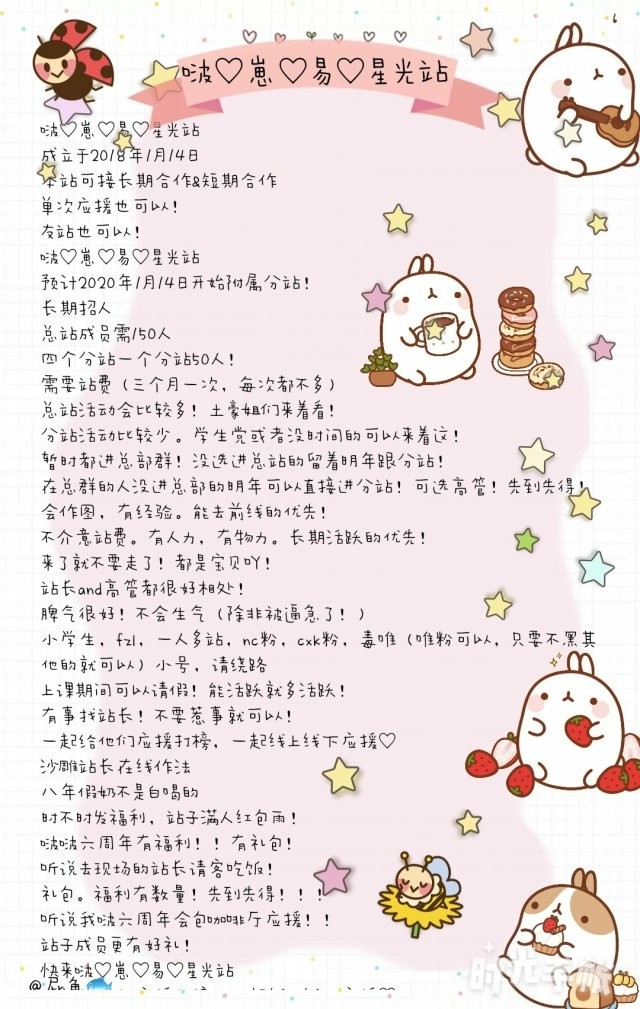 啵♡崽♡易♡星光站
啵♡崽♡易♡星光站
成立于2018年1月14日
本站可接长期合作&短期合作
单次应援也可以！
友站也可以！
啵♡崽♡易♡星光站
预计2020年1月14日开始附属分站！
长期招人
总站成员需150人
四个分站一个分站50人！
需要站费（三个月一次，每次都不多）
总站活动会比较多！土豪姐们来着看！
分站活动比较少。学生党或者没时间的可以来着这！
暂时都进总部群！没选进总站的留着明年跟分站！
在总群的人没进总部的明年可以直接进分站！可选高管！先到先得！
会作图，有经验。能去前线的优先！
不介意站费。有人力，有物力。长期活跃的优先！
来了就不要走了！都是宝贝吖！
站长and高管都很好相处！
脾气很好！不会生气（除非被逼急了！）
小学生，fzl，一人多站，nc粉，cxk粉，毒唯（唯粉可以，只要不黑其
他的就可以）小号，请绕路
上课期间可以请假！能活跃就多活跃！
有事找站长！不要惹事就可以！
一起给他们应援打榜，一起线上线下应援♡
沙雕站长在线作法
八年假奶不是白喝的
时不时发福利，站子满人红包雨！
啵啵六周年有福利！！有礼包！
听说去现场的站长请客吃饭！
礼包。福利有数量！先到先得！！！
听说我啵六周年会包咖啡厅应援！！
站子成员更有好礼！
快来啵♡崽♡易♡星光站
时光手帐